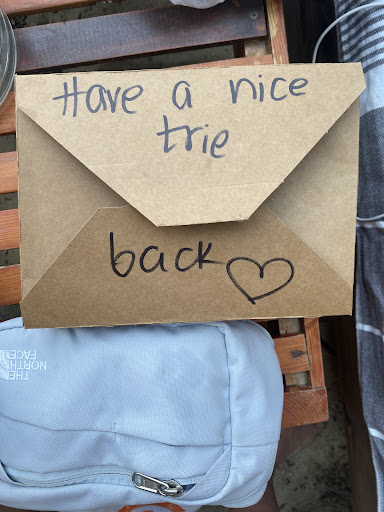 Have a nice
trie
back
THE
NORTH
FACE